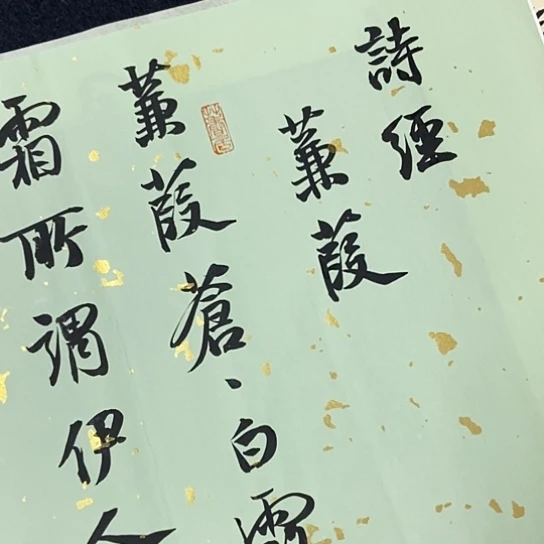 詩經
蒹葭
蒹葭蒼、白露
霜所謂伊人